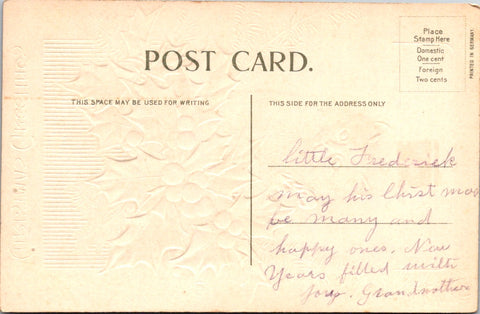 POST CARD.
Place
Stamp Here
Domestic
One cent
Foreign
Two cents
PRINTED IN GERMANY.
THIS SPACE MAY BE USED FOR WRITING
THIS SIDE FOR THE ADDRESS ONLY
little Frederick
may his Christ mas
be many and
happy ones. New
Years filled with
joy. Grandmother